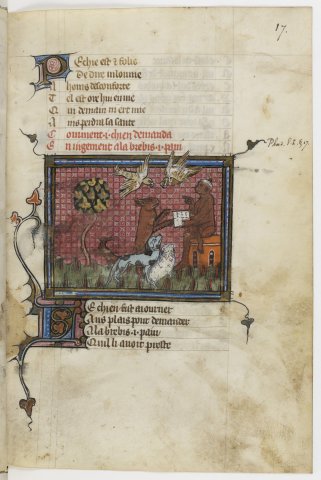 17.
Pechie est & folie
De dire vilonnie
A home desconforte
Tel est ore hui en vie
Qui demain nert mie
Ains perdra sa sante
Coument .i. chien demanda
En iugement a la brebis .i. pain
Phaed. L. I.
Le chien fait aiourner
Aus plais pour demander
A la brebis .i. pain
Quil li avoit preste